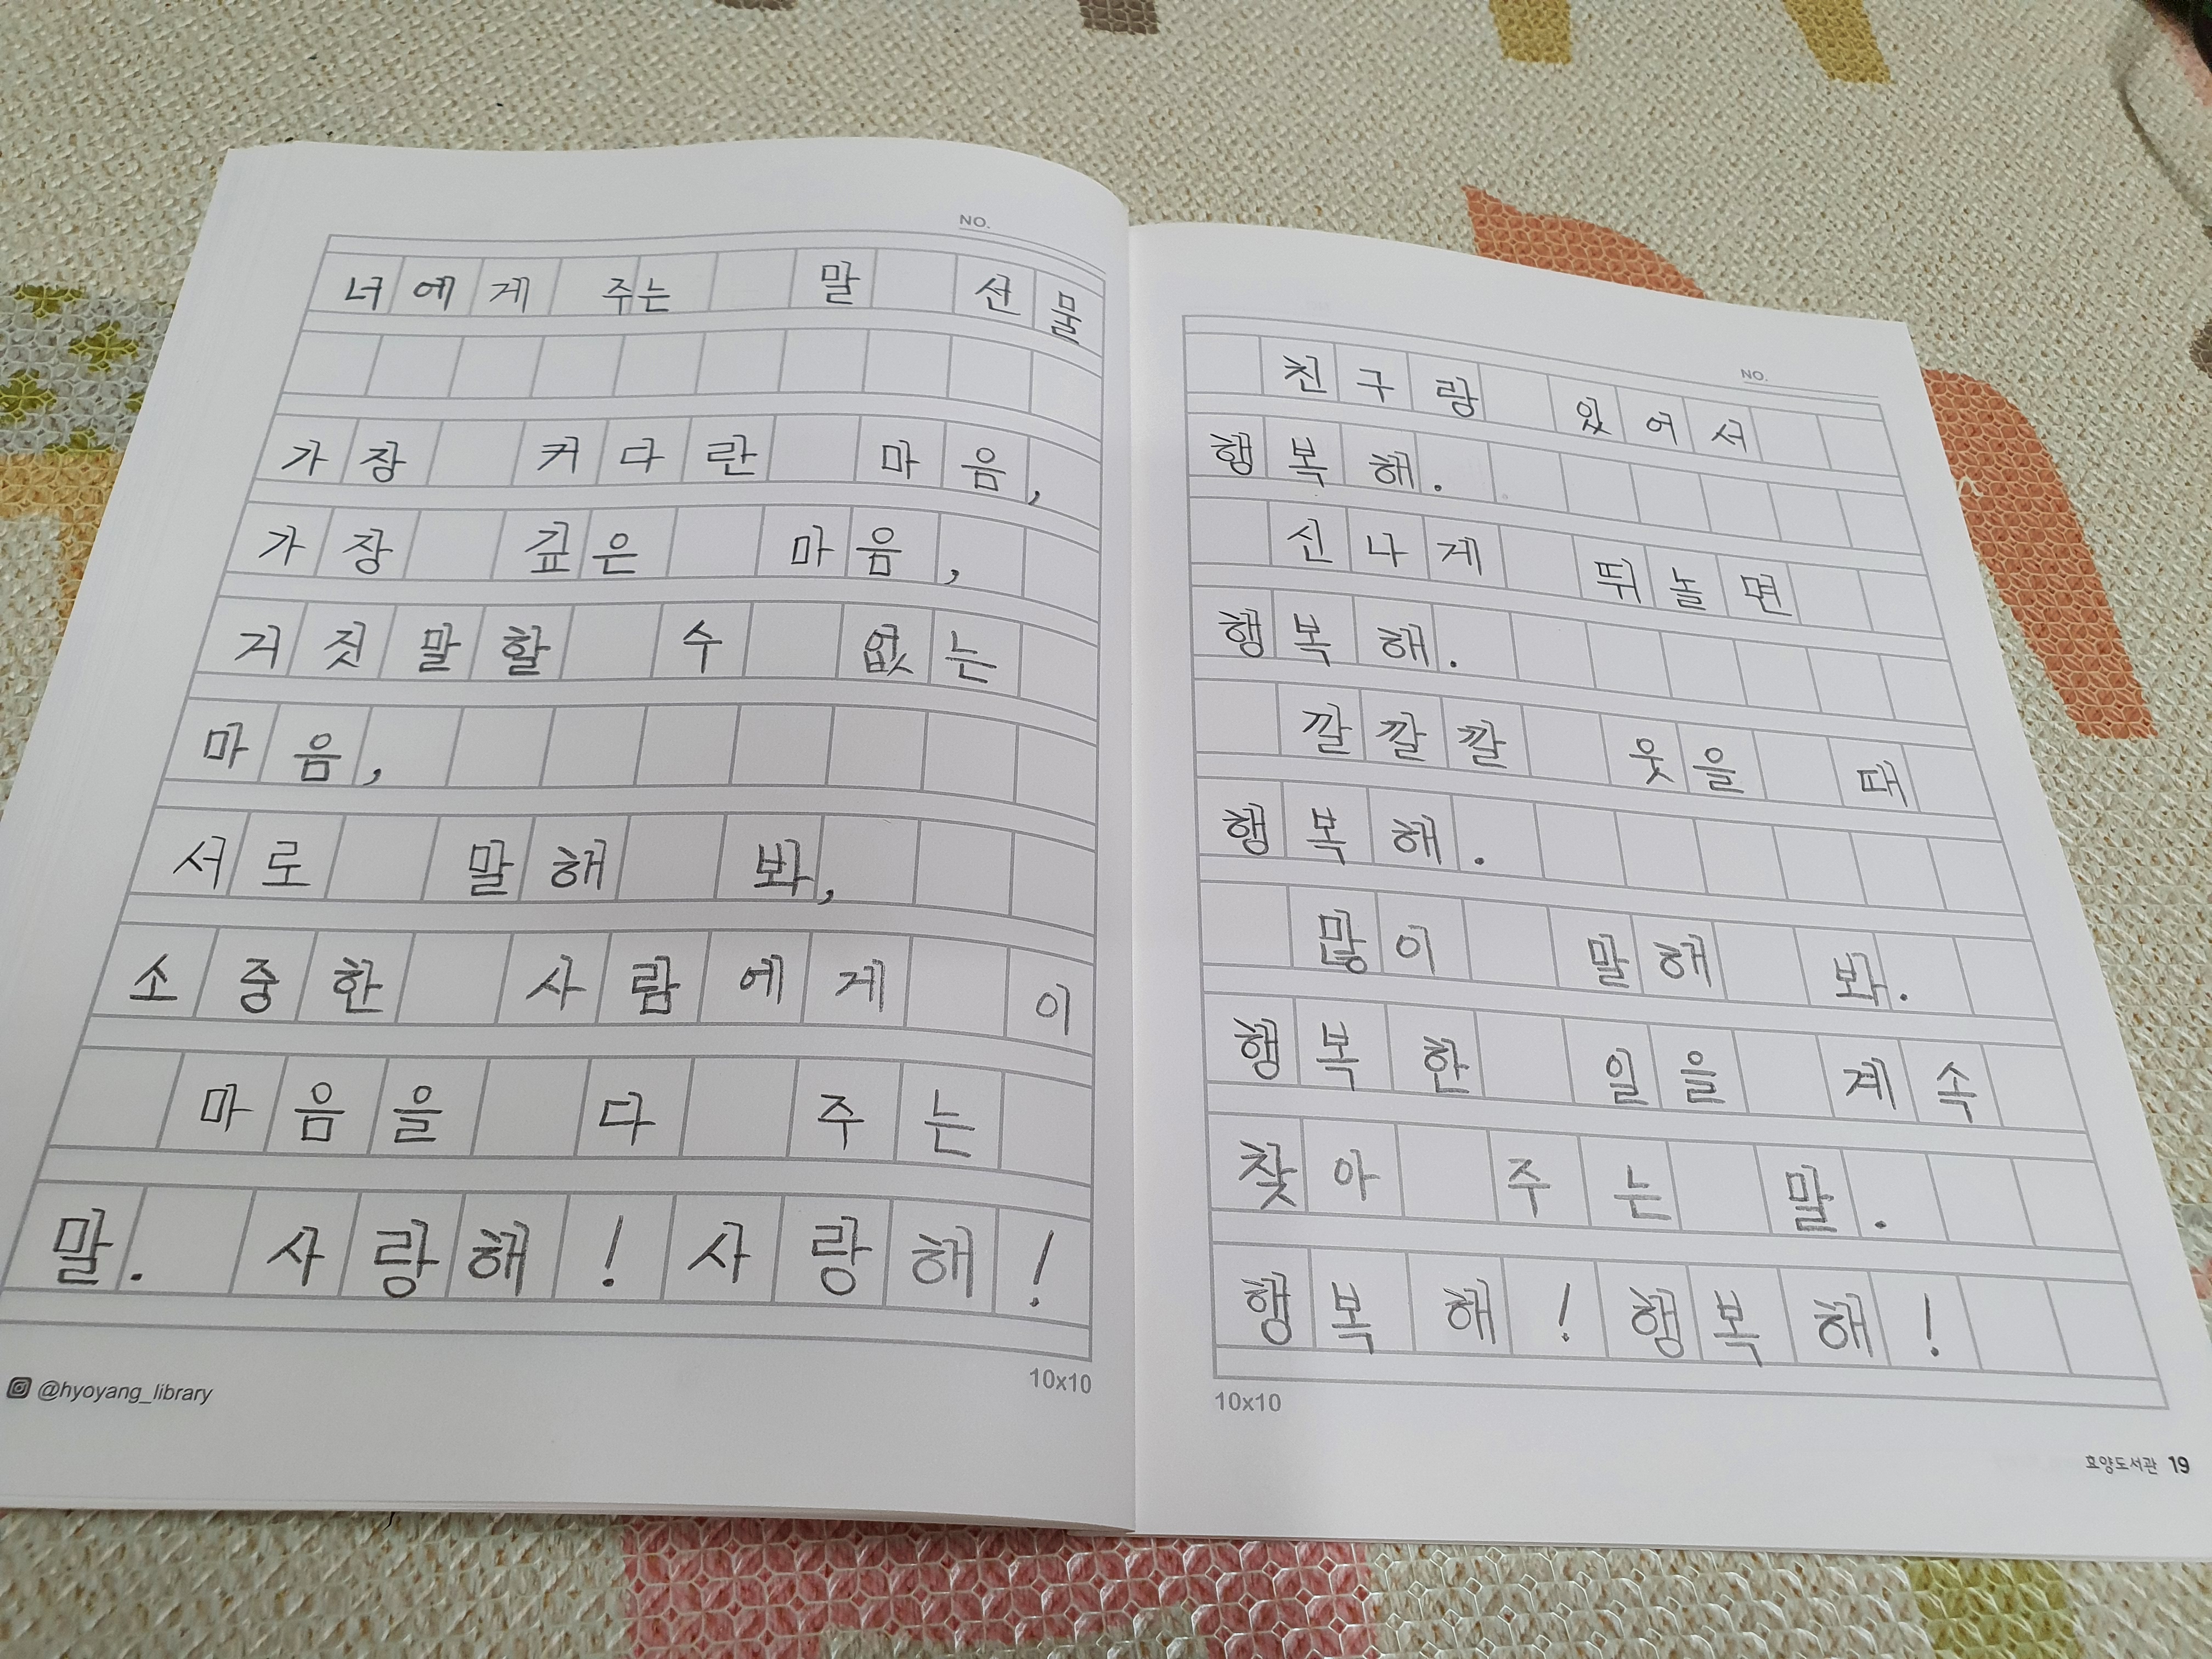 NO.
너에게 주는 말 선물
가장 커다란 마음,
가장 깊은 마음,
거짓말할 수 없는
마음,
서로 말해 봐,
소중한 사람에게 이
마음을 다 주는
말. 사랑해! 사랑해!
10x10
@hyoyang_library
NO.
친구랑 있어서
행복해.
신나게 뛰놀면
행복해.
깔깔깔 웃을 때
행복해.
많이 말해 봐.
행복한 일을 계속
찾아 주는 말.
행복해! 행복해!
10x10
효양도서관 19